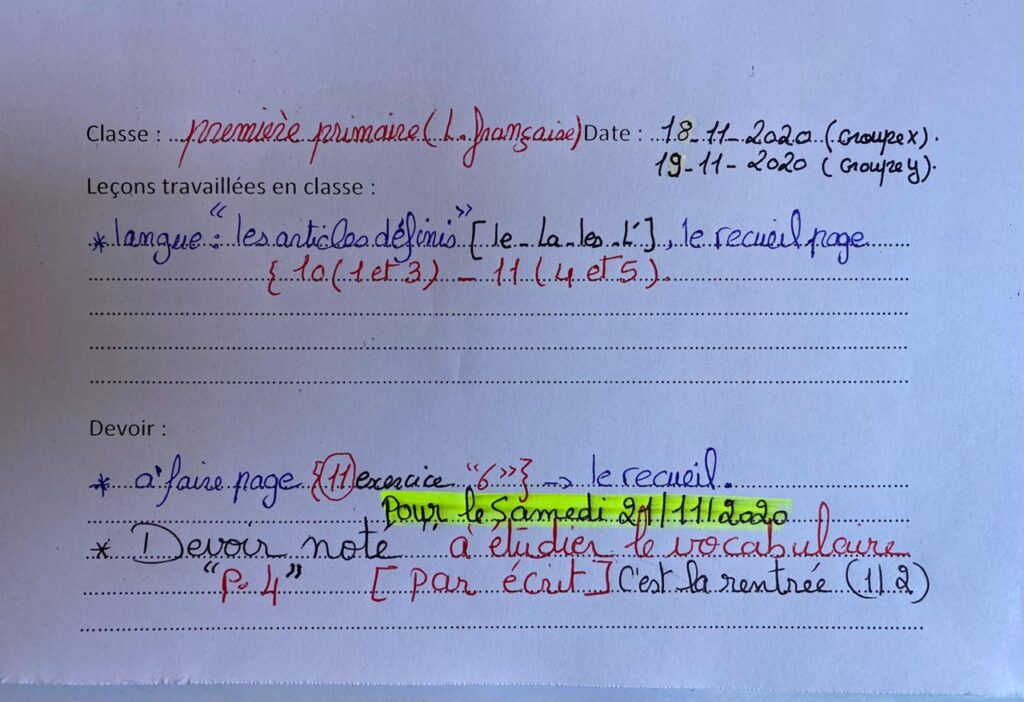 Classe : première primaire (L. française) Date : 18-11-2020 (Groupe X).
19-11-2020 (Groupe Y).
Leçons travaillées en classe :
* langue : "les articles définis" [le - la - les - L'], le recueil page
{ 10 (1 et 3) - 11 (4 et 5).
Devoir :
* à faire page {11 exercice "6"} → le recueil.
Pour le Samedi 21/11/2020
* Devoir noté à étudier le vocabulaire
"P. 4" [par écrit] C'est la rentrée (1/2)